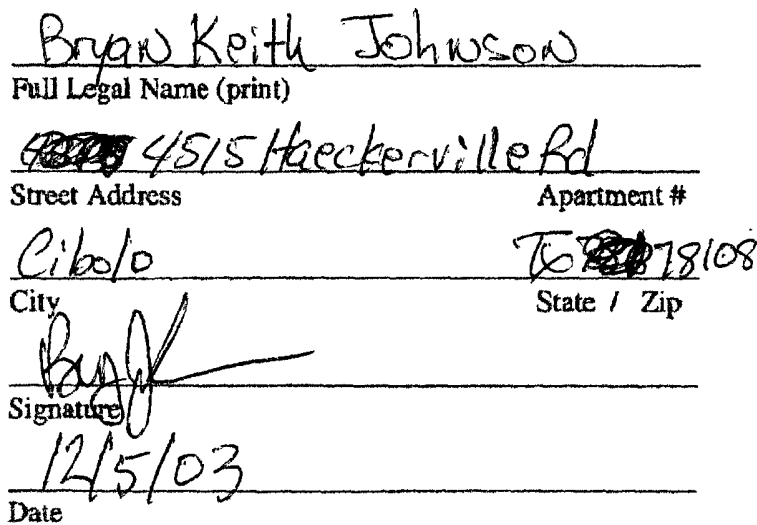 Bryan Keith Johnson
Full Legal Name (print)
4515 Haeckerville Rd
Street Address Apartment #
Cibolo TX 78108
City State / Zip
Signature
12/5/03
Date